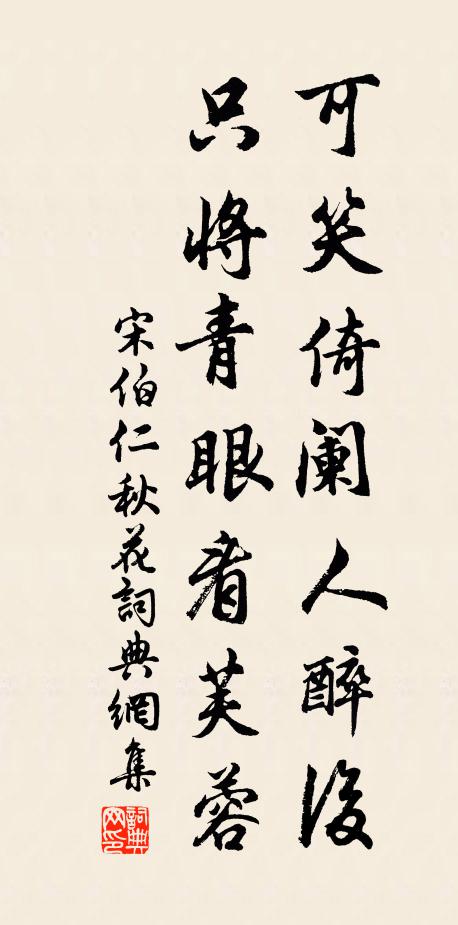 可笑倚阑人醉後
只将青眼看芙蓉
宋伯仁秋花詞典網集
詞典网印